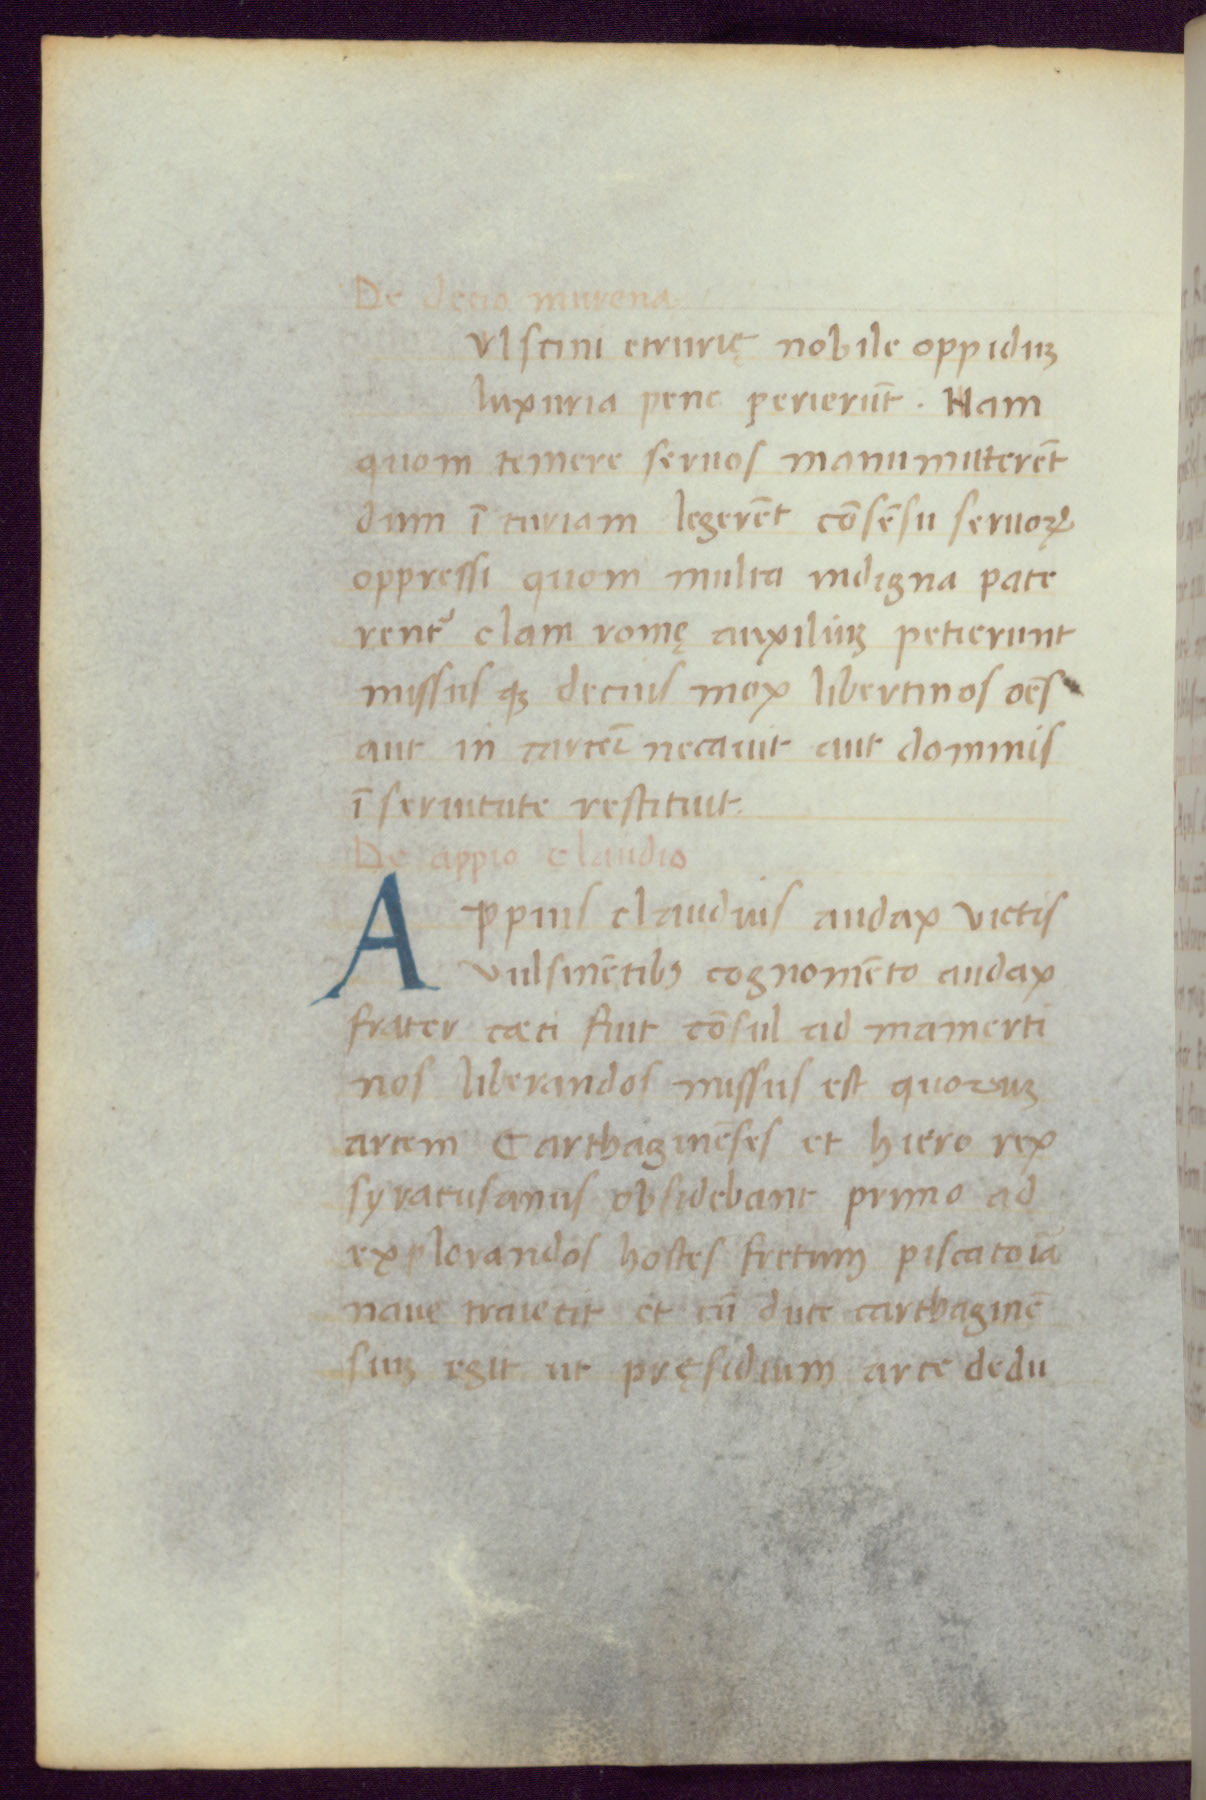 De decio murena
Vlscini etrurię nobile oppiduꝫ
luxuria pene perierūt. Nam
quom temere seruos manumitterēt
dum ī curiam legerēt cōsēsu seruoꝝ
oppressi quom multa indigna pate
rent᷑ clam romę auxiliuꝫ petierunt
missus qꝫ decius mox libertinos oēs
aut in carcerē necauit aut dominis
ī seruitute restituit.
De appio claudio
Appius claudius audax victis
vulsinētibꝫ cognomēto audax
frater cæci fuit cōsul ad mamerti
nos liberandos missus est quoruꝫ
arcem Carthaginēses et hiero rex
syracusanus obsidebant primo ad
explorandos hostes fretum piscatoīa
naue traiecit et cū duce carthaginē
siuꝫ egit ut pręsidium arce dedu